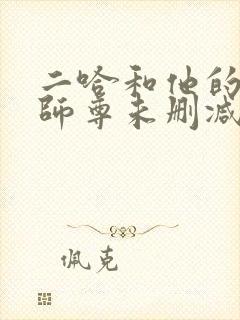 二哈和他的
師尊未删减
佩克